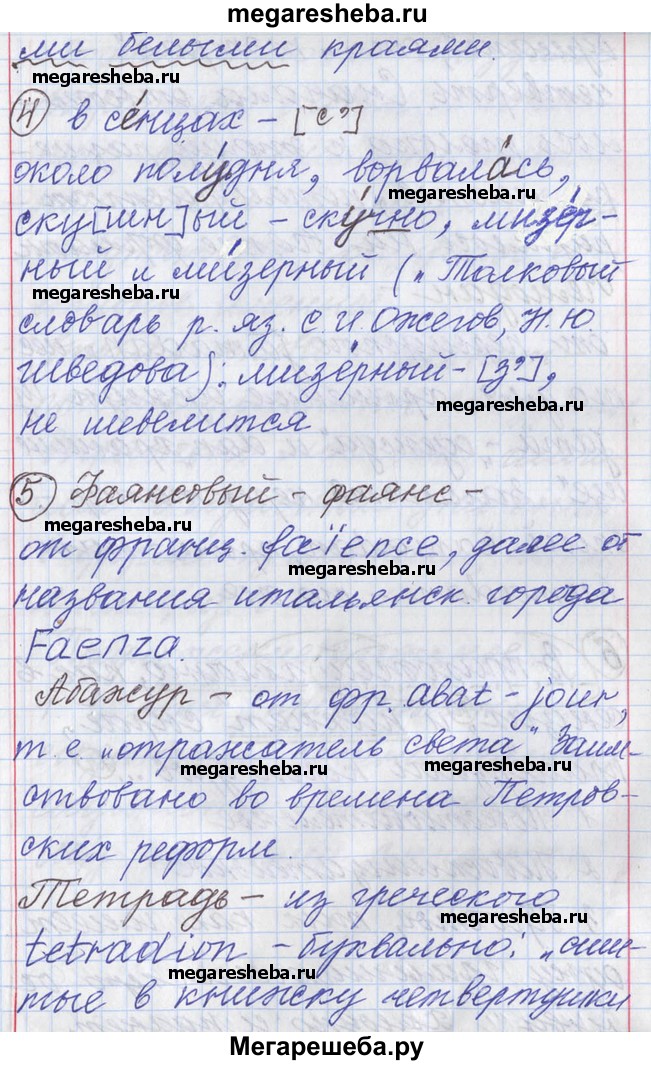 megaresheba.ru
ми белыми краями.
megaresheba.ru
megaresheba.ru
4 в се́нцах – [с']
около полу́дня, ворвала́сь,
megaresheba.ru
ску[шн]ый – ску́чно, мизе́р-
ный и ми́зерный („Толковый
megaresheba.ru
словарь р. яз. С. И. Ожегов, Н. Ю.
Шведова): мизе́рный – [з'],
megaresheba.ru
не шевелится
5 Фаянсовый – фаянс –
megaresheba.ru
от франц. faïence, далее от
megaresheba.ru
названия итальянск. города
Faenza.
Абажур – от фр. abat-jour,
т. е. „отражатель света" Заим-
megaresheba.ru
megaresheba.ru
ствовано во времена Петров-
ских реформ.
Тетрадь – из греческого
megaresheba.ru
tetradion – буквально: „сши-
megaresheba.ru
тые в книжку четвертушки
Мегарешеба.ру